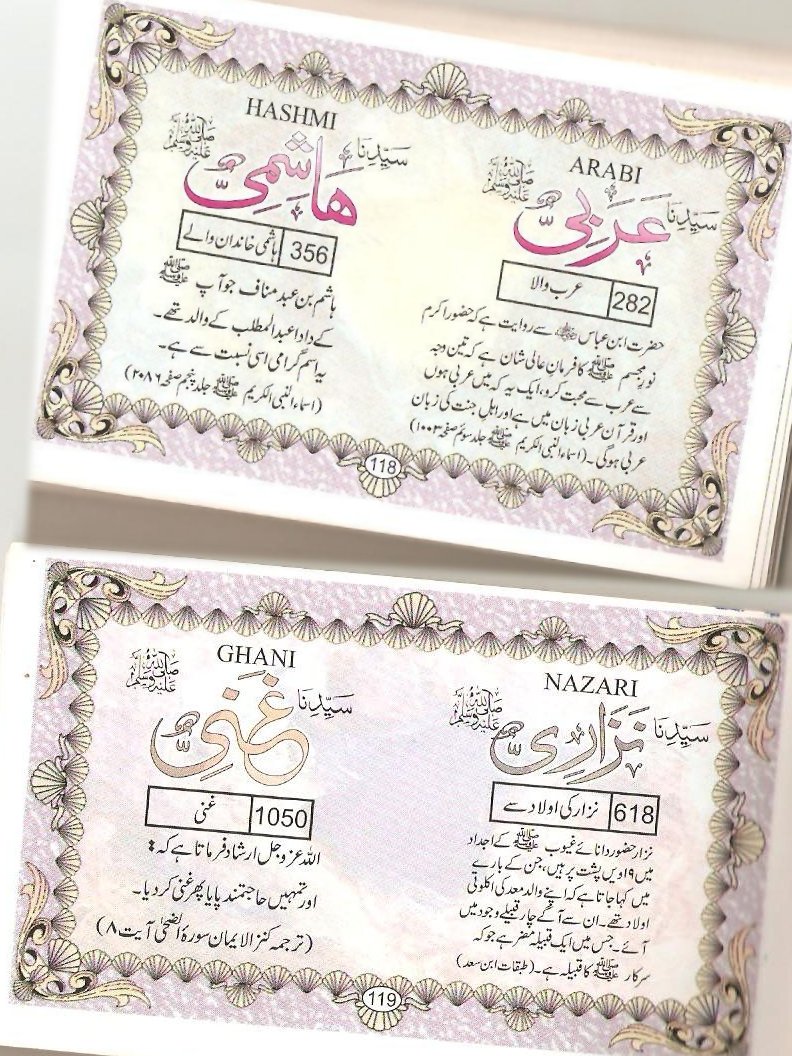 ARABI
سَیِّدِنَا عَرَبِیٌّ ﷺ
282 عرب والا
حضرت ابن عباس ؓ سے روایت ہے کہ حضور اکرم
نورِ مجسم ﷺ کا فرمان عالی شان ہے کہ تین وجہ
سے عرب سے محبت کرو، ایک یہ کہ میں عربی ہوں
اور قرآن عربی زبان میں ہے اور اہلِ جنت کی زبان
عربی ہوگی۔ (اسماء النبی الکریم ﷺ جلد سوئم صفحہ ۱۰۰۳)
HASHMI
سَیِّدِنَا هَاشِمِیٌّ ﷺ
356 ہاشمی خاندان والے
ہاشم بن عبد مناف جو آپ ﷺ
کے دادا عبدالمطلب کے والد تھے۔
یہ اسم گرامی اسی نسبت سے ہے۔
(اسماء النبی الکریم ﷺ جلد پنجم صفحہ ۲۰۸۶)
118
NAZARI
سَیِّدِنَا نَزَارِیٌّ ﷺ
618 نزار کی اولاد سے
نزار حضور دانائے غیوب ﷺ کے اجداد
میں ۱۹ویں پشت پر ہیں، جن کے بارے
میں کہا جاتا ہے کہ اپنے والد معد کی اکلوتی
اولاد تھے۔ ان سے آگے چار قبیلے وجود میں
آئے۔ جس میں ایک قبیلہ مضر ہے جو کہ
سرکار ﷺ کا قبیلہ ہے۔ (طبقات ابن سعد)
GHANI
سَیِّدِنَا غَنِیٌّ ﷺ
1050 غنی
اللہ عزوجل ارشاد فرماتا ہے کہ:
اور تمہیں حاجتمند پایا پھر غنی کر دیا۔
(ترجمہ کنزالایمان سورۃ الضحٰی آیت ۸)
119